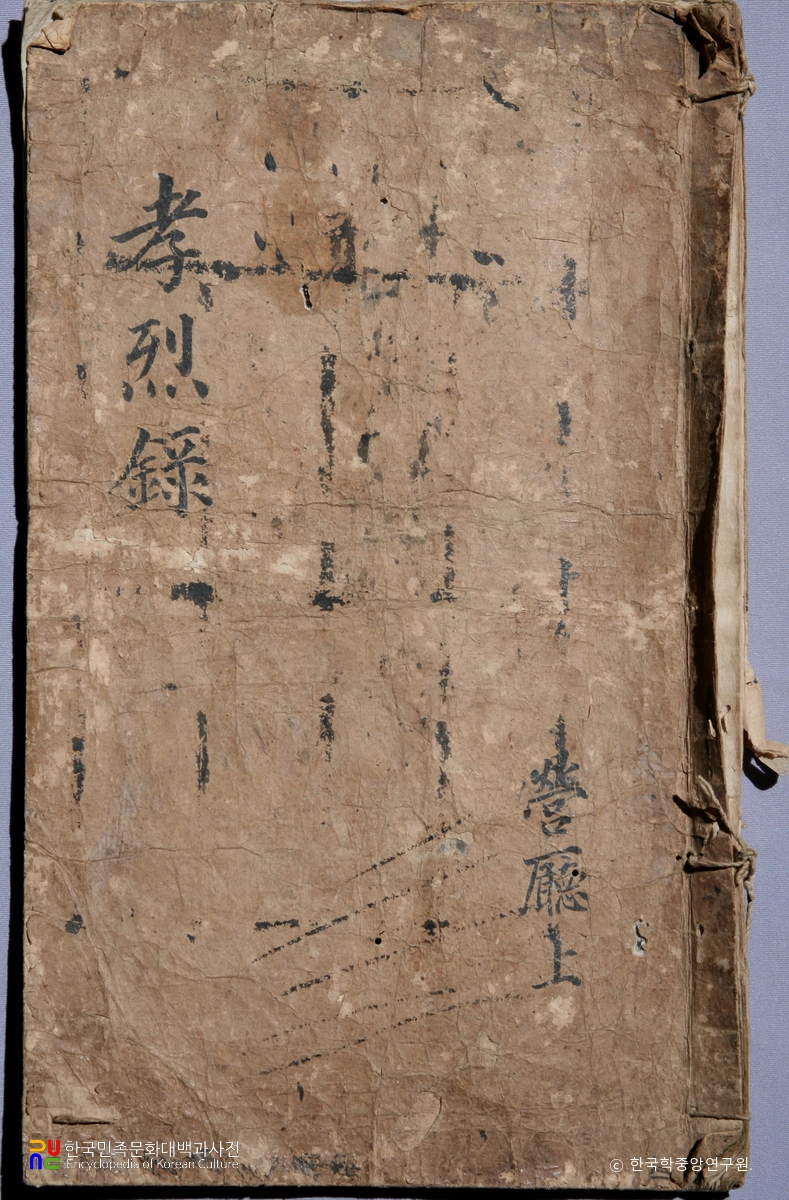 營廳上
孝烈錄
한국민족문화대백과사전
Encyclopedia of Korean Culture
© 한국학중앙연구원.